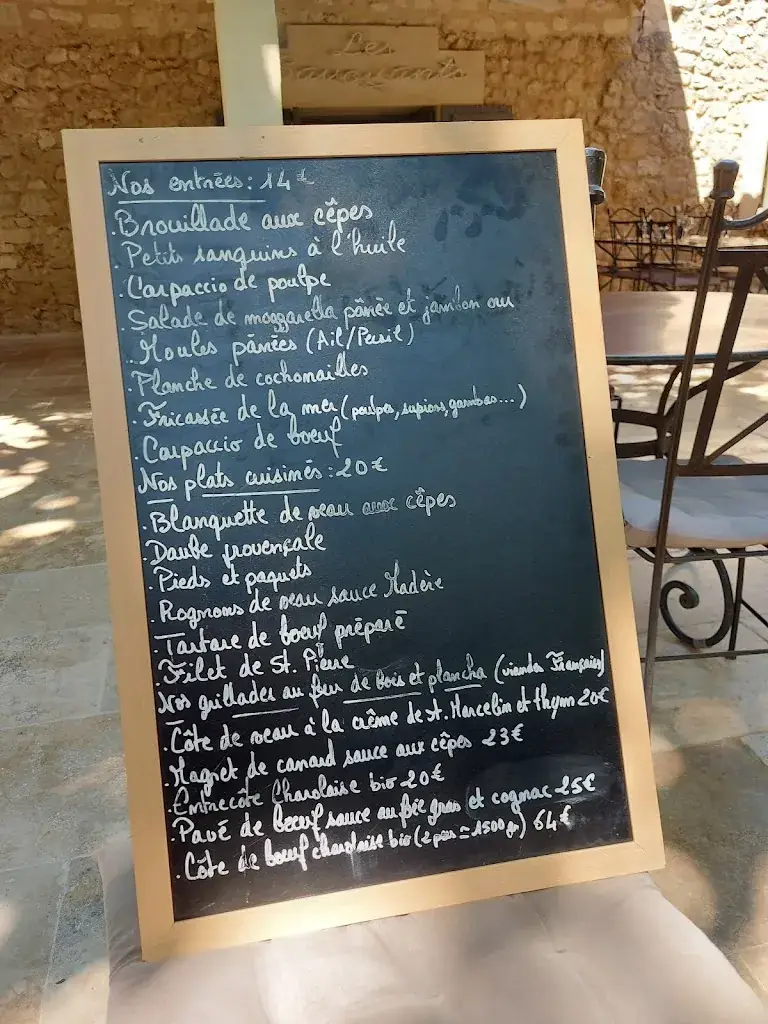 Les Savourants
Nos entrées: 14€
. Brouillade aux cêpes
. Petits sanguins à l'huile
. Carpaccio de poulpe
. Salade de mozzarella pânée et jambon cru
. Moules panées (Ail/Persil)
. Planche de cochonailles
. Fricassée de la mer (poulpes, supions, gambas...)
. Carpaccio de boeuf
Nos plats cuisinés: 20€
. Blanquette de veau aux cêpes
. Daube provençale
. Pieds et paquets
. Rognons de veau sauce Madère
. Tartare de boeuf préparé
. Filet de St. Pierre
Nos grillades au feu de bois et plancha (viandes Françaises)
. Côte de veau à la crème de St. Marcelin et thym 20€
. Magret de canard sauce aux cêpes 23€
. Entrecôte Charolaise bio 20€
. Pavé de boeuf sauce au foie gras et cognac 25€
. Côte de boeuf charolaise bio (2 pers = 1500gr) 64€